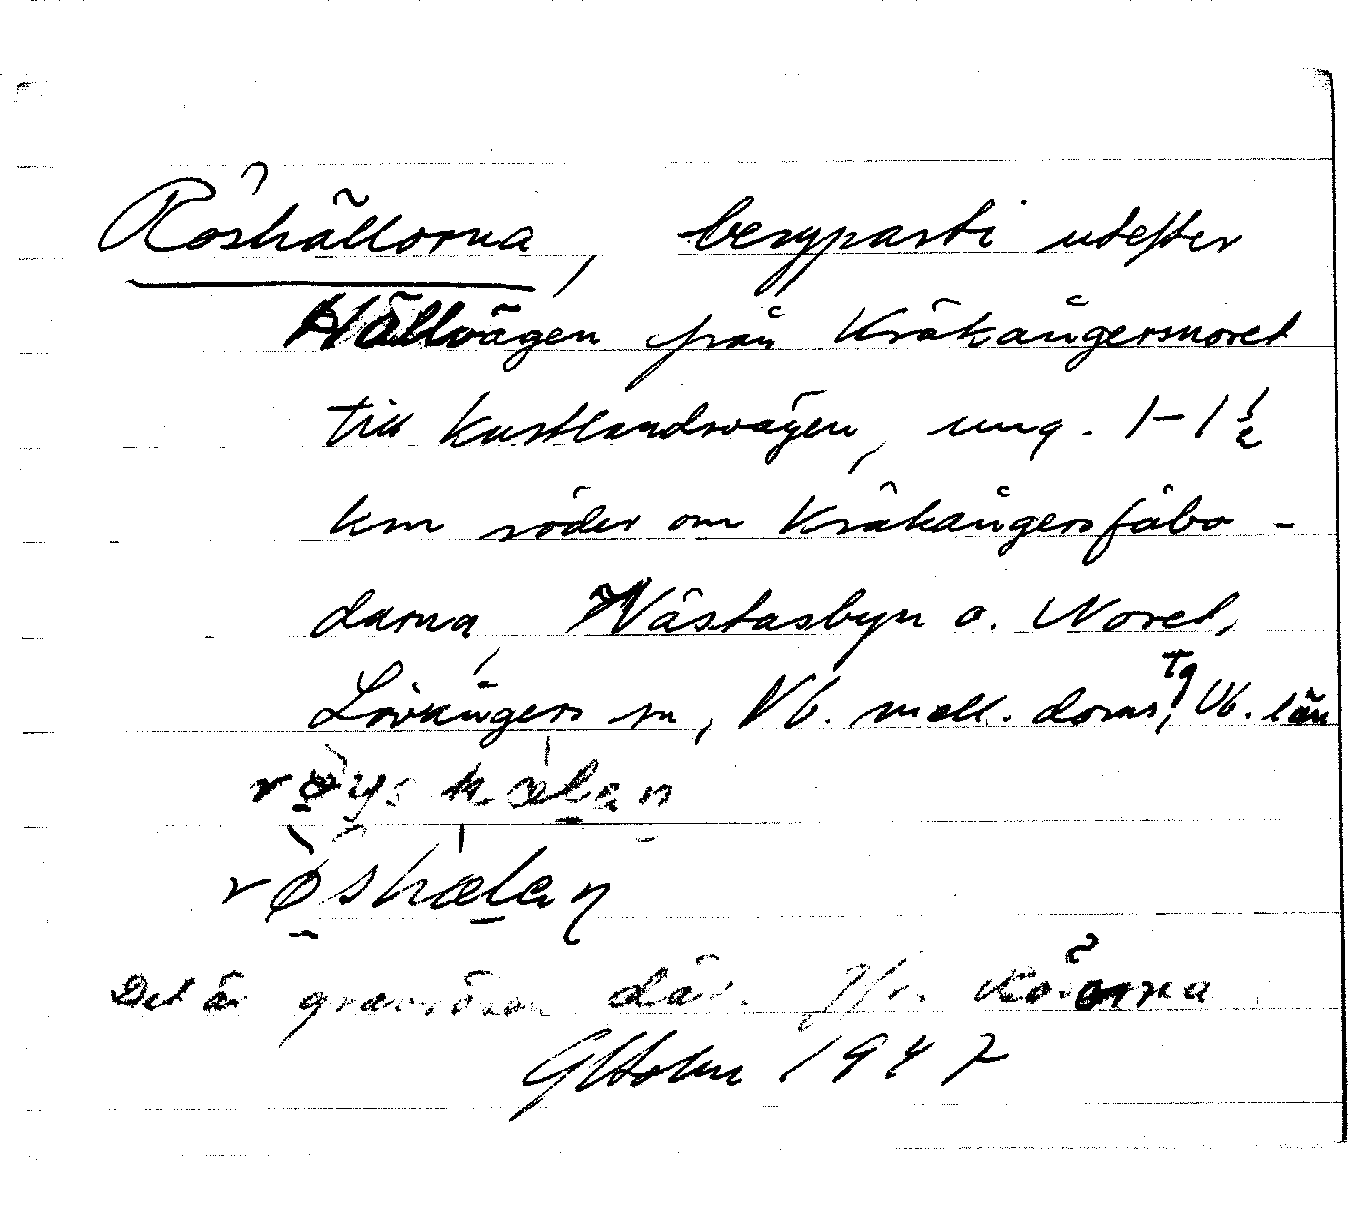 Röshällorna, bergparti utefter
Hällvägen från Kräkångersnoret
till kustlandsvägen, ung. 1-1½
km söder om Kräkångersfäbo-
darna, Västasbyn o. Noret,
Lövångers sn, Vb. mell. doms. tg, Vb. län
røyshælan
røshælan
Det är gravrösen där. Jfr.
GHolm 1947